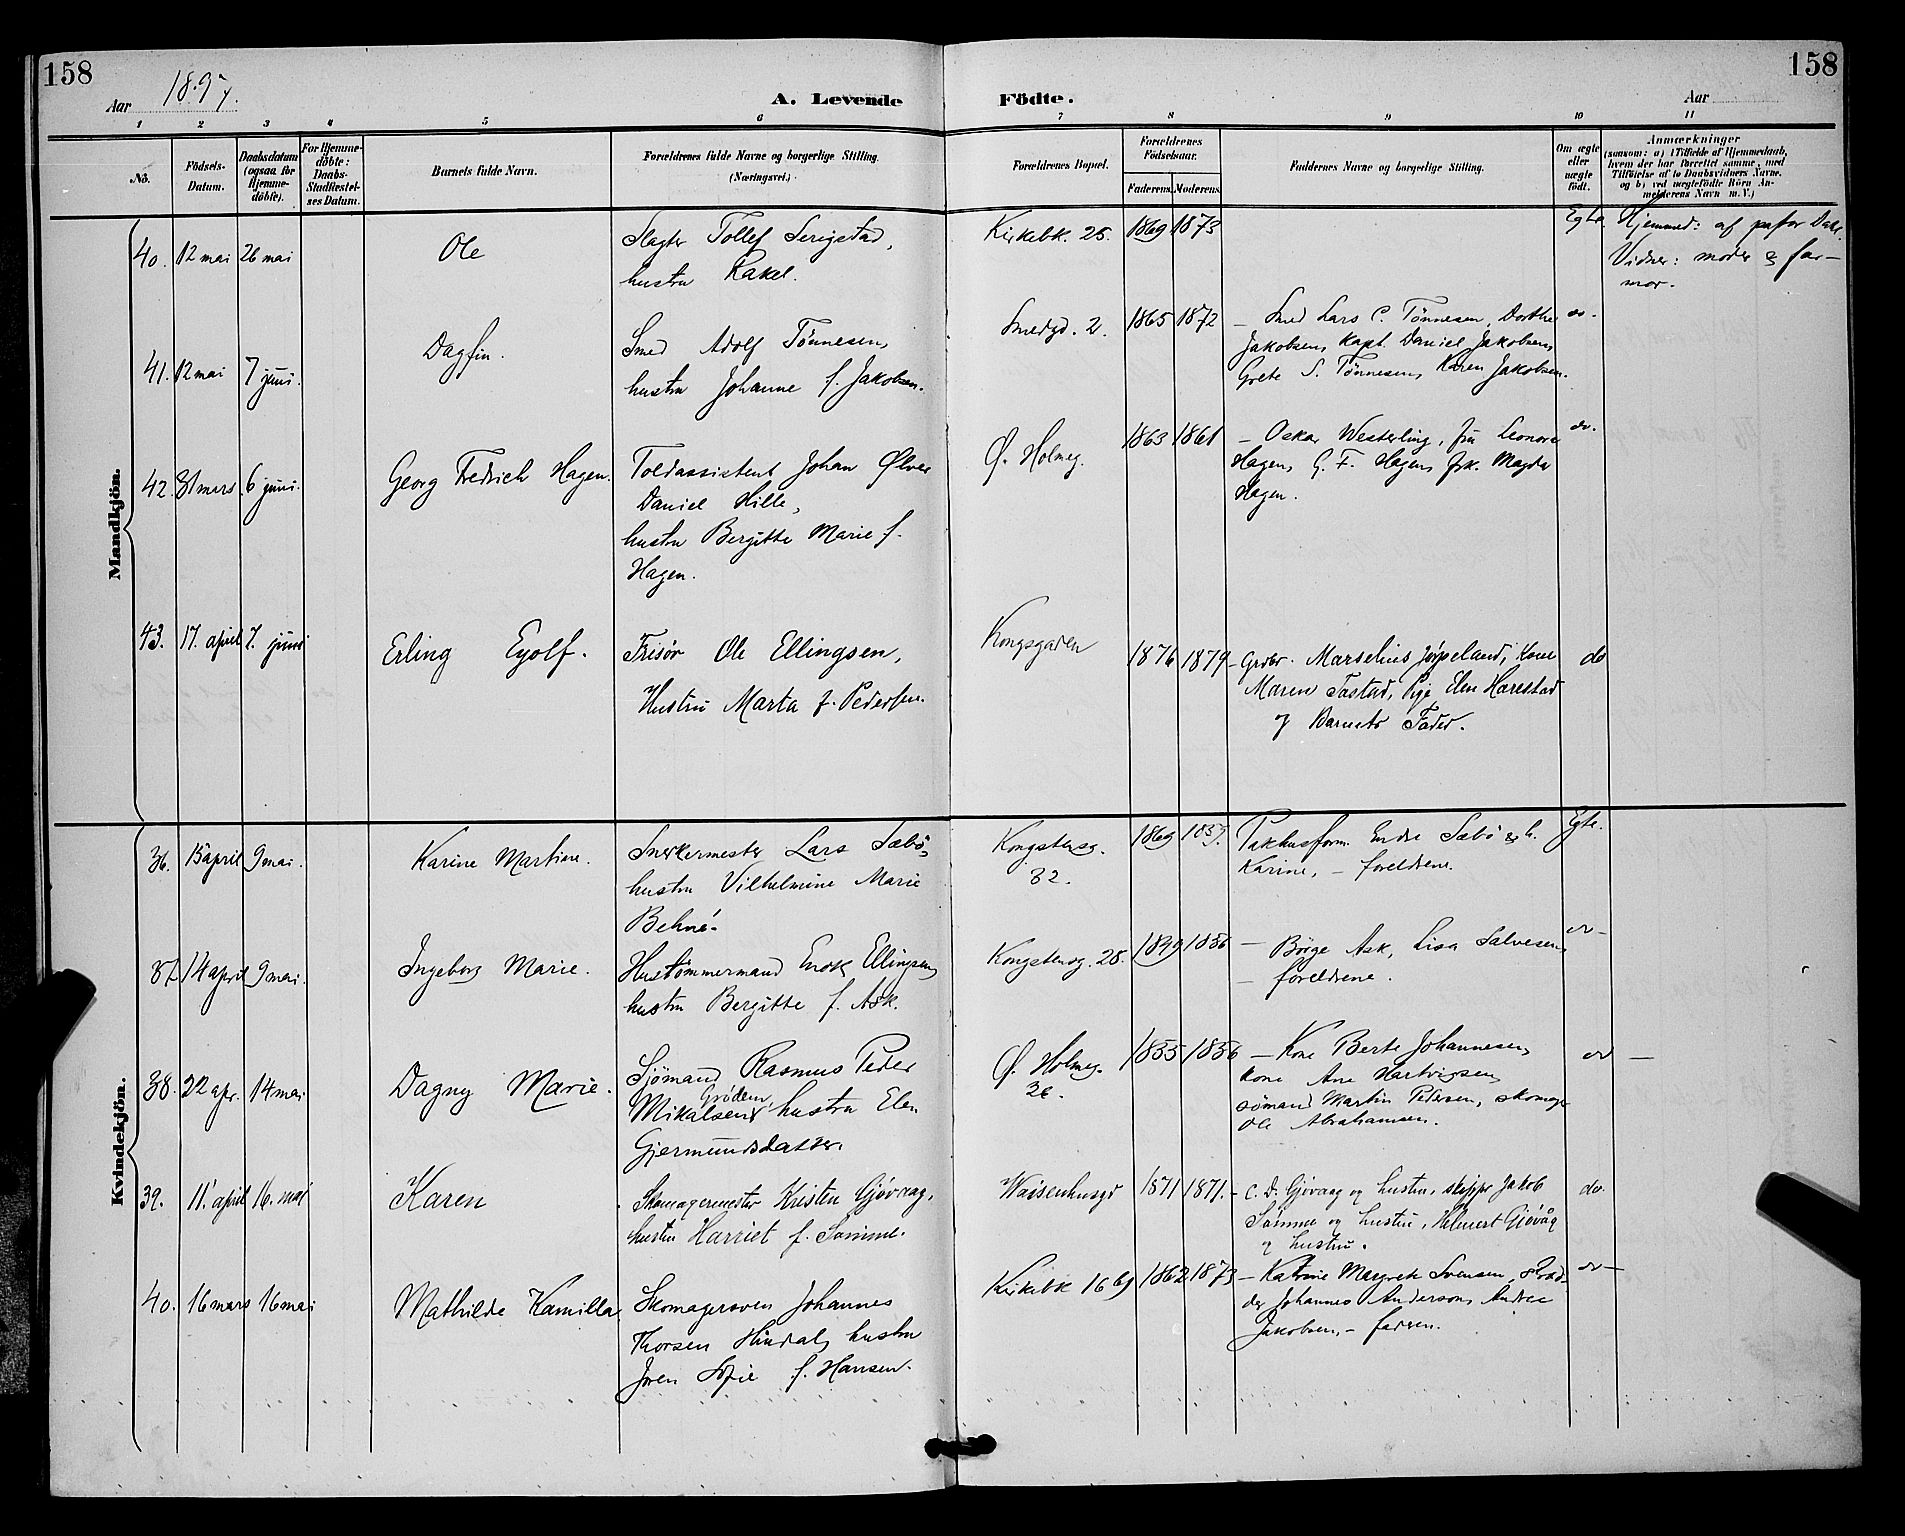 158
158
Aar 1897.
A. Levende
Födte.
Aar
1 2 3 4 5 6 7 8 9 10 11
No.
Födsels-
Datum.
Daabsdatum
(ogsaa for
Hjemme-
döbte).
For Hjemme-
döbte:
Daabs-
Stadfæstel-
ses Datum.
Barnets fulde Navn.
Forældrenes fulde Navne og borgerlige Stilling.
(Næringsvei.)
Forældrenes Bopæl.
Forældrenes
Födselsaar.
Faderens. Moderens.
Faddernes Navne og borgerlige Stilling.
Om ægte
eller
uægte
födt.
Anmærkninger
(saasom: a) i Tilfælde af Hjemmedaab,
hvem der har forrettet samme, med
Tilföielse af to Daabsvidners Navne,
og b) ved uægtefödte Börn An-
melderens Navn m. V.)
Mandkjön.
40. 12 mai 26 mai Ole
Slagter Tollef Serigstad,
hustru Rakel.
Kirkebk. 25. 1869 1873
Egte.
Hjemmed: af pastor Dahl.
Vidner: moder & far-
mor.
41. 12 mai 7 juni. Dagfin.
Smed Adolf Tönnesen,
hustru Johanne f. Jakobsen.
Smedgd. 2. 1865 1872
– Smed Lars C. Tönnesen, Dorthe
Jakobsen, kapt. Daniel Jakobsen,
Grete S. Tönnesen, Karen Jakobsen.
do.
42. 31 mars 6 juni. Georg Fredrich Hagen.
Toldassistent Johan Ølver
Daniel Hille,
hustru Bergitte Marie f.
Hagen.
Ø. Holmeg. 1863 1861
– Oskar Westerling, fru Leonore
Hagen, G. F. Hagen, frk. Magda
Hagen.
do.
43. 17. april 7. juni Erling Eyolf.
Frisör Ole Ellingsen,
Hustru Marta f. Pedersen.
Kongsgaden 1876 1879
– Grdbr. Marselius Jøpeland, Kone
Maren Tastad, Pige Elen Harestad
og Barnets Fader.
do
Kvindekjön.
36. 15 april 9 mai. Karine Martine.
Snekermester Lars Sæbö,
hustru Vilhelmine Marie
Behné.
Kongstensg.
32.
1869 1859.
Pakhusform. Endre Sæbö & h.
Karine, – foreldrene.
Egte.
37. 14 april 9 mai. Ingeborg Marie.
Hustömmermand Enok Ellingsen,
hustru Bergitte f. Ask.
Kongstensg. 28. 1849 1856
– Börge Ask, Lisa Salvesen,
– foreldrene.
do –
38. 22 apr. 14 mai Dagny Marie.
Sjömand Rasmus Peder
Grödem,
Mikalsen, hustru Elen
Gjermundsdatter.
Ø. Holmeg.
26.
1855 1856
– Kone Berte Johannesen,
kone Ane Hartvigsen,
sömand Martin Pedersen, skomager
Ole Abrahamsen.
do –
39. 11. april 16. mai Karen
Skomagermester Kristen Gjövaag,
hustru Harriet f. Sömme.
Waisenhusgd 1871 1871.
– C. D. Gjövaag og hustru, skippr Jakob
Sömme og hustru, Helmert Gjövåg
og hustru.
do.
40. 16 mars 16 mai Mathilde Kamilla.
Skomagersven Johannes
Thorsen Hindal, hustru
Joren Sofie f. Hansen.
Kirkebk 16 1862 1873
– Katrine Margrete Svensen,
Johannes Anderson, Andrea
Jakobsen, – faderen.
do –